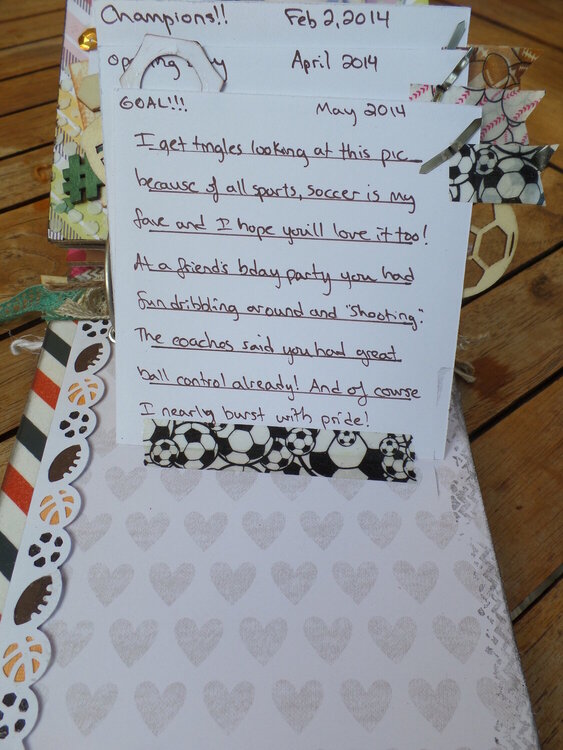 Champions!! Feb 2, 2014
Opening April 2014
GOAL!!! May 2014
I get tingles looking at this pic
because of all sports, soccer is my
fave and I hope you'll love it too!
At a friend's bday party you had
fun dribbling around and "shooting".
The coaches said you had great
ball control already! And of course
I nearly burst with pride!
#